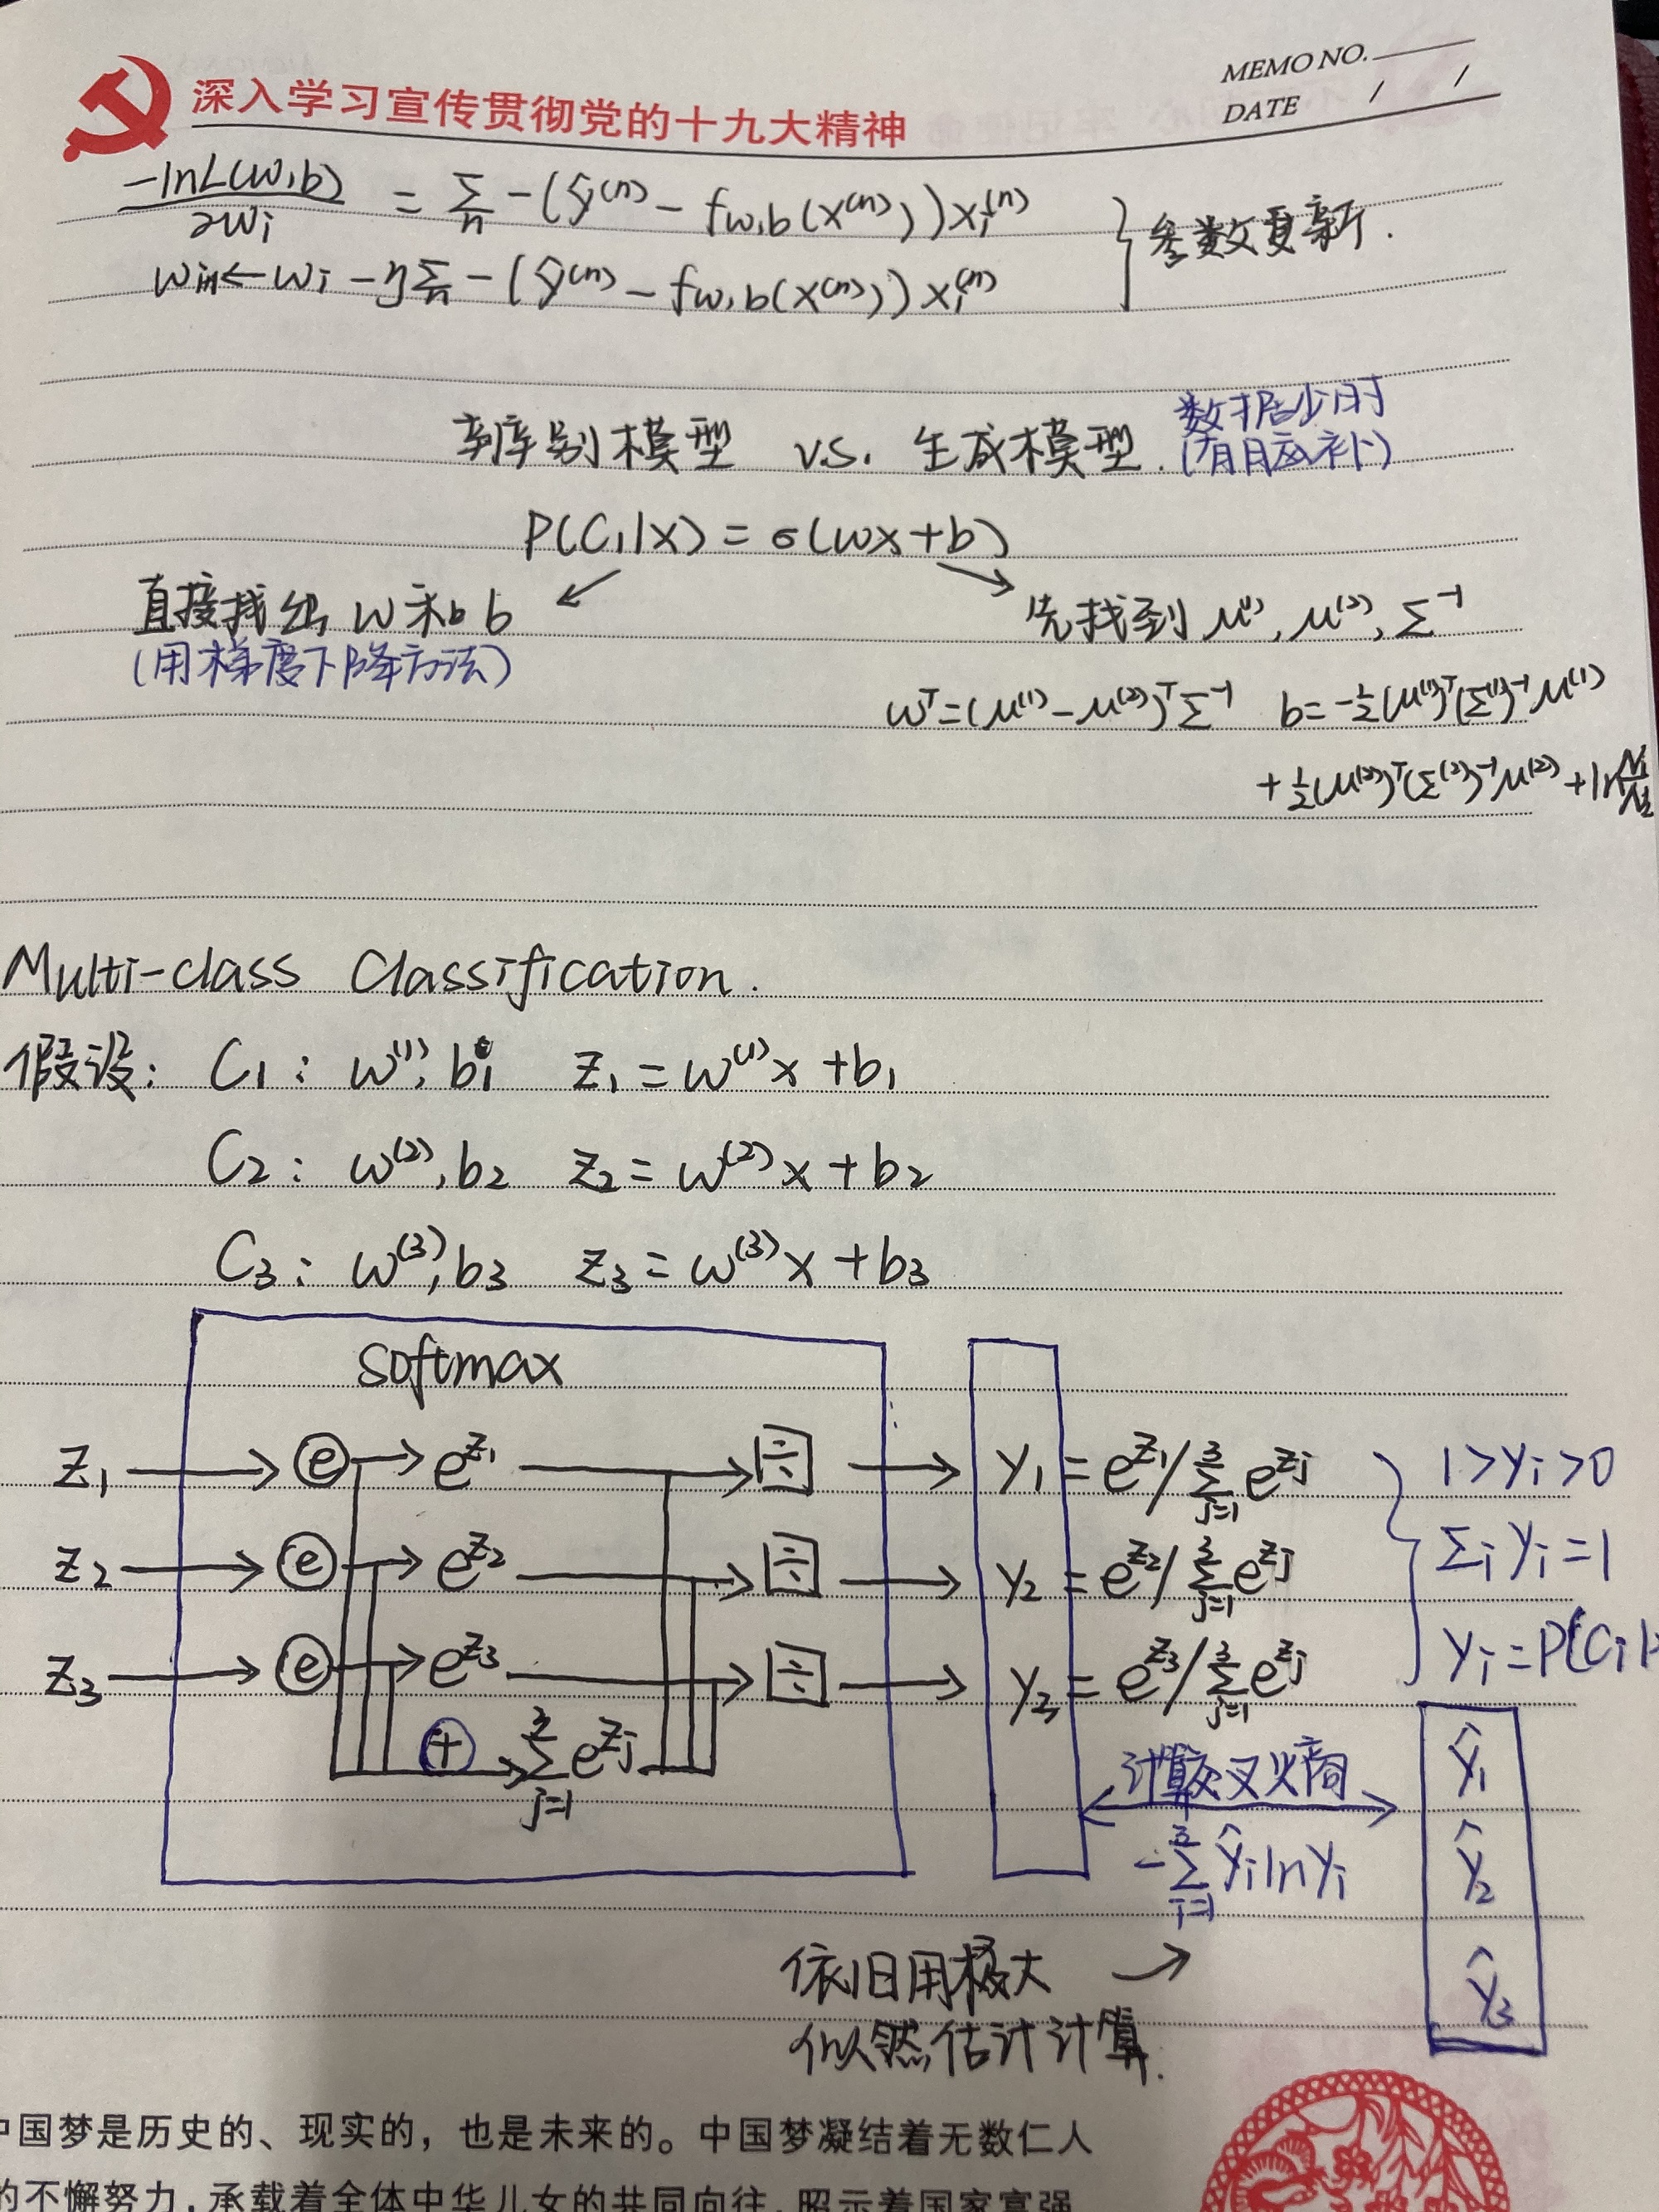 深入学习宣传贯彻党的十九大精神
MEMO NO.
DATE / /
-lnL(w,b)/∂wᵢ = Σₙ -(ŷ⁽ⁿ⁾ - f_w,b(x⁽ⁿ⁾))xᵢ⁽ⁿ⁾
← wᵢ - η Σₙ -(ŷ⁽ⁿ⁾ - f_w,b(x⁽ⁿ⁾))xᵢ⁽ⁿ⁾
} 参数更新.
别模型 v.s. 生成模型.
数据少时
P(C₁|x) = σ(wx+b)
↙ ↘
直接找出 w和b
(用梯度下降方法)
先找到 μ⁽¹⁾, μ⁽²⁾, Σ⁻¹
wᵀ=(μ⁽¹⁾-μ⁽²⁾)ᵀΣ⁻¹ b=-½(μ⁽¹⁾)ᵀ(Σ⁽¹⁾)⁻¹μ⁽¹⁾
+½(μ⁽²⁾)ᵀ(Σ⁽²⁾)⁻¹μ⁽²⁾+ln N₁/N₂
Multi-class Classification.
假设: C₁: w⁽¹⁾, b₁ z₁ = w⁽¹⁾x + b₁
C₂: w⁽²⁾, b₂ z₂ = w⁽²⁾x + b₂
C₃: w⁽³⁾, b₃ z₃ = w⁽³⁾x + b₃
softmax
z₁ → e → e^z₁ → ÷ → y₁ = e^z₁/Σ_{j=1}^3 e^zj
z₂ → e → e^z₂ → ÷ → y₂ = e^z₂/Σ_{j=1}^3 e^zj
z₃ → e → e^z₃ → ÷ → y₃ = e^z₃/Σ_{j=1}^3 e^zj
+ → Σ_{j=1}^3 e^zj
1>yᵢ>0
Σᵢyᵢ=1
yᵢ=P(Cᵢ|
计算交叉熵
-Σ_{i=1}^3 ŷᵢ ln yᵢ
ŷ₁
ŷ₂
ŷ₃
依旧用极大 →
似然估计计算.
中国梦是历史的、现实的，也是未来的。中国梦凝结着无数仁人
的不懈努力，承载着全体中华儿女的共同向往，昭示着国家富强